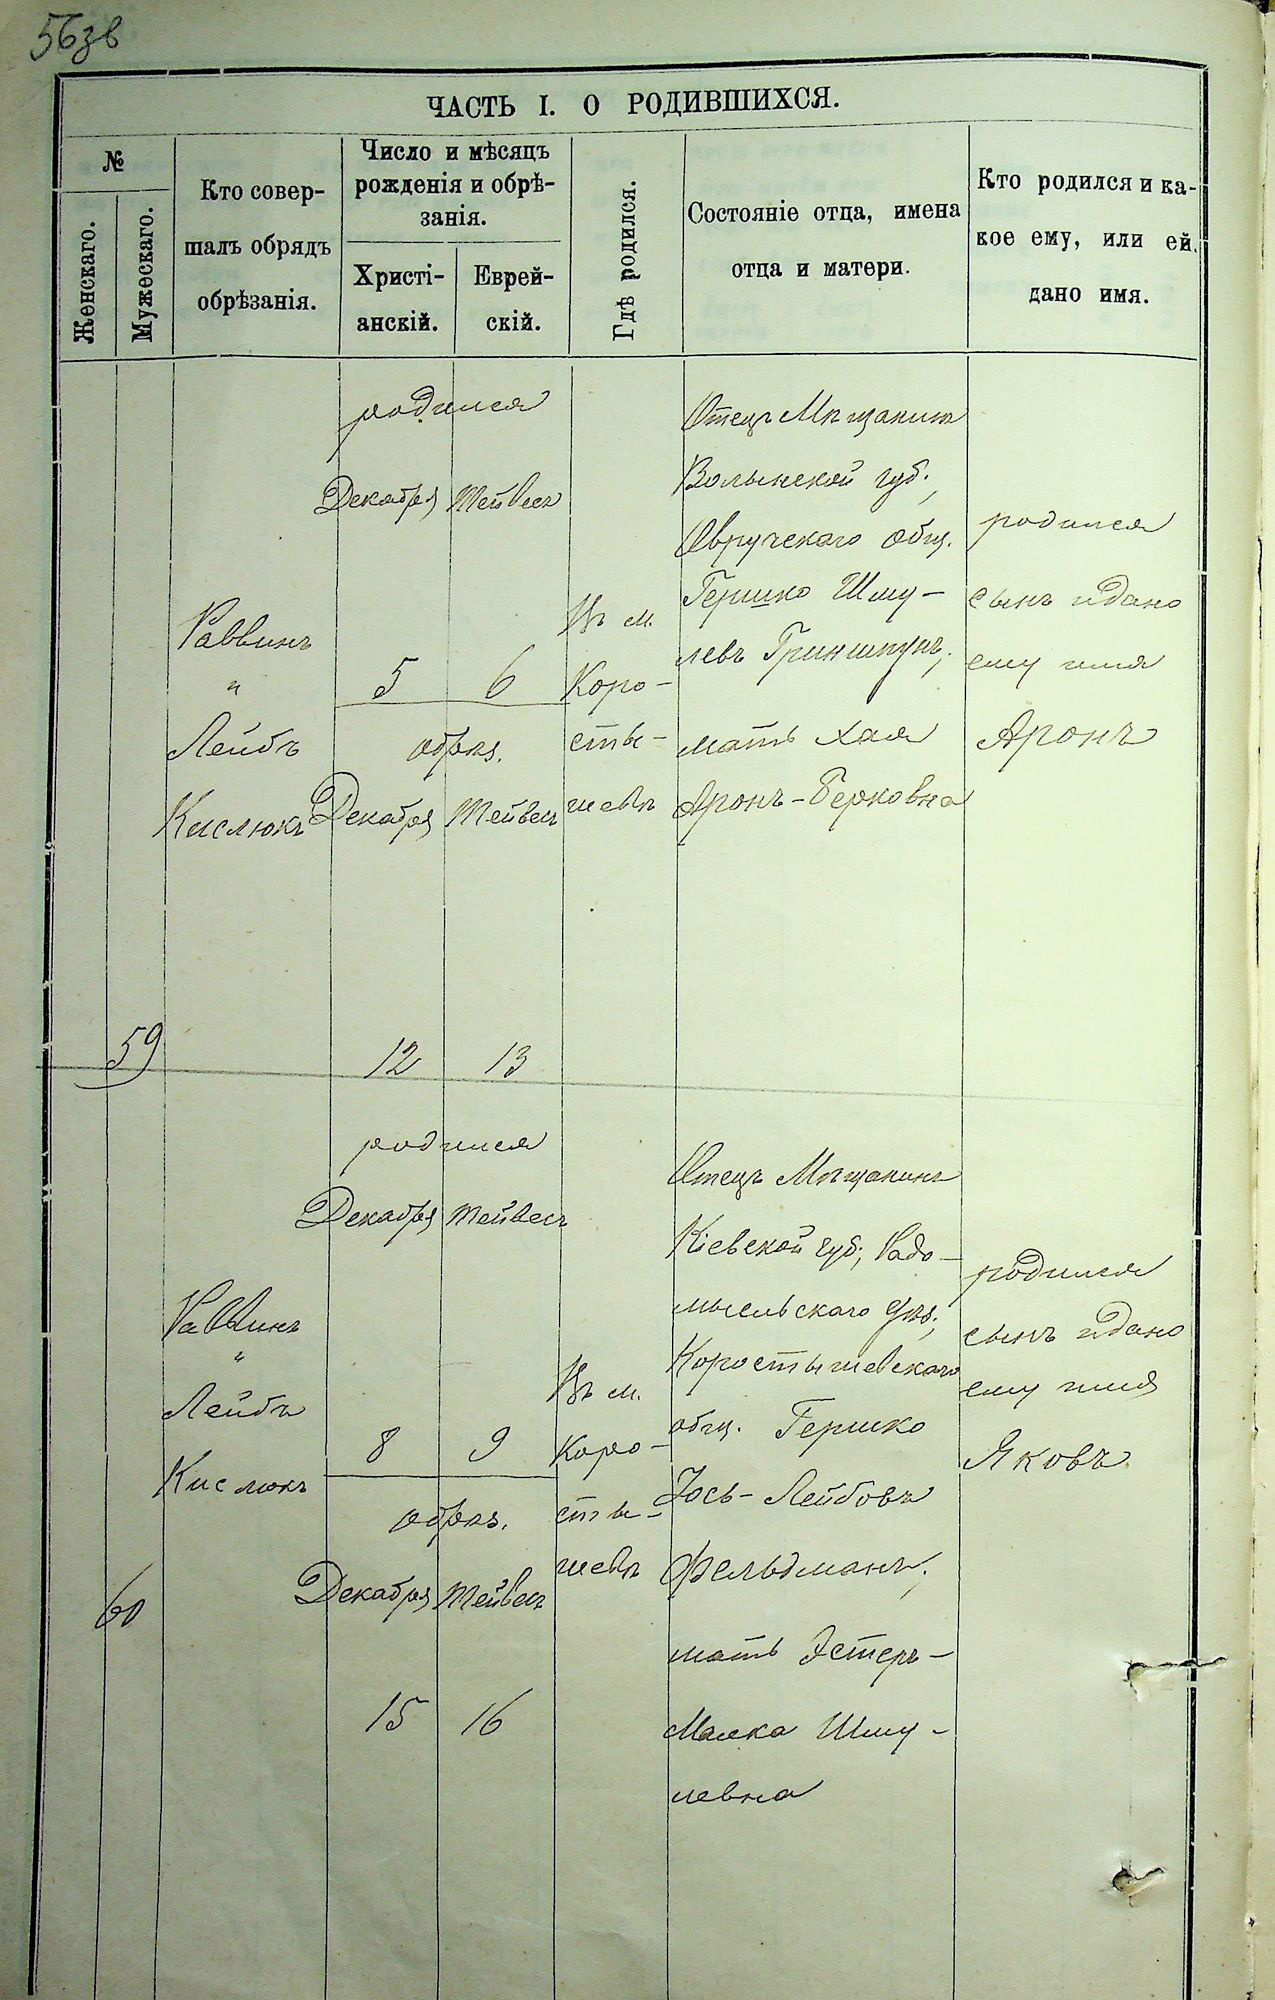 56зв
ЧАСТЬ I. О РОДИВШИХСЯ.
№
Женскаго.
Мужескаго.
Кто совер-
шалъ обрядъ
обрѣзанія.
Число и мѣсяцъ
рожденія и обрѣ-
занія.
Христі-
анскій.
Еврей-
скій.
Гдѣ родился.
Состояніе отца, имена
отца и матери.
Кто родился и ка-
кое ему, или ей,
дано имя.
59
Раввинъ
"
Лейбъ
Кислюкъ
родился
Декабря Тейвесъ
5 6
обрѣз.
Декабря Тейвесъ
12 13
Въ м.
Коро-
сты-
шевѣ
Отецъ Мѣщанинъ
Волынской губ.,
Овручскаго общ.
Гершко Шму-
левъ Гриншпунъ,
мать Хая
Аронъ-Берковна
родился
сынъ и дано
ему имя
Аронъ
60
Раввинъ
"
Лейбъ
Кислюкъ
родился
Декабря Тейвесъ
8 9
обрѣз.
Декабря Тейвесъ
15 16
Въ м.
Коро-
сты-
шевѣ
Отецъ Мѣщанинъ
Кіевской губ., Радо-
мысльскаго уѣз.,
Коростышевскаго
общ. Гершко
Іось-Лейбовъ
Фельдманъ,
мать Эстеръ-
Малка Шму-
левна
родился
сынъ и дано
ему имя
Яковъ